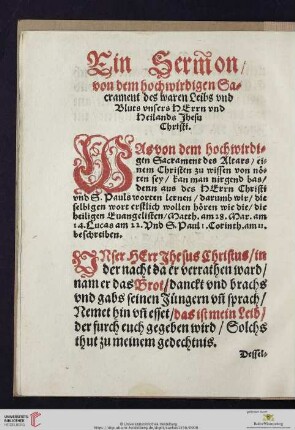 Ein Sermon/
von dem hochwirdigen Sa-
crament des waren Leibs vnd
Bluts vnsers HErrn vnd
Heilands Jhesu
Christi.
WAs von dem hochwirdi-
gen Sacrament des Altars / ei-
nem Christen zu wissen von nö-
ten sey / kan man nirgend bas /
denn aus des HErrn Christi
vnd S. Pauls worten lernen / darumb wir / die
selbigen wort erstlich wollen hören wie die / die
heiligen Euangelisten / Matth. am 28. Mar. am
14. Lucas am 22. Vnd S. Paul 1. Corinth. am 11.
beschreiben.
VNser HErr Jhesus Christus / in
der nacht da er verrathen ward /
nam er das Brot / danckt vnd brachs
vnd gabs seinen Jüngern vn̄ sprach /
Nemet hin vn̄ esset / das ist mein Leib /
der fur euch gegeben wird / Solchs
thut zu meinem gedechtnis.
Dessel-
UNIVERSITÄTS-
BIBLIOTHEK
HEIDELBERG